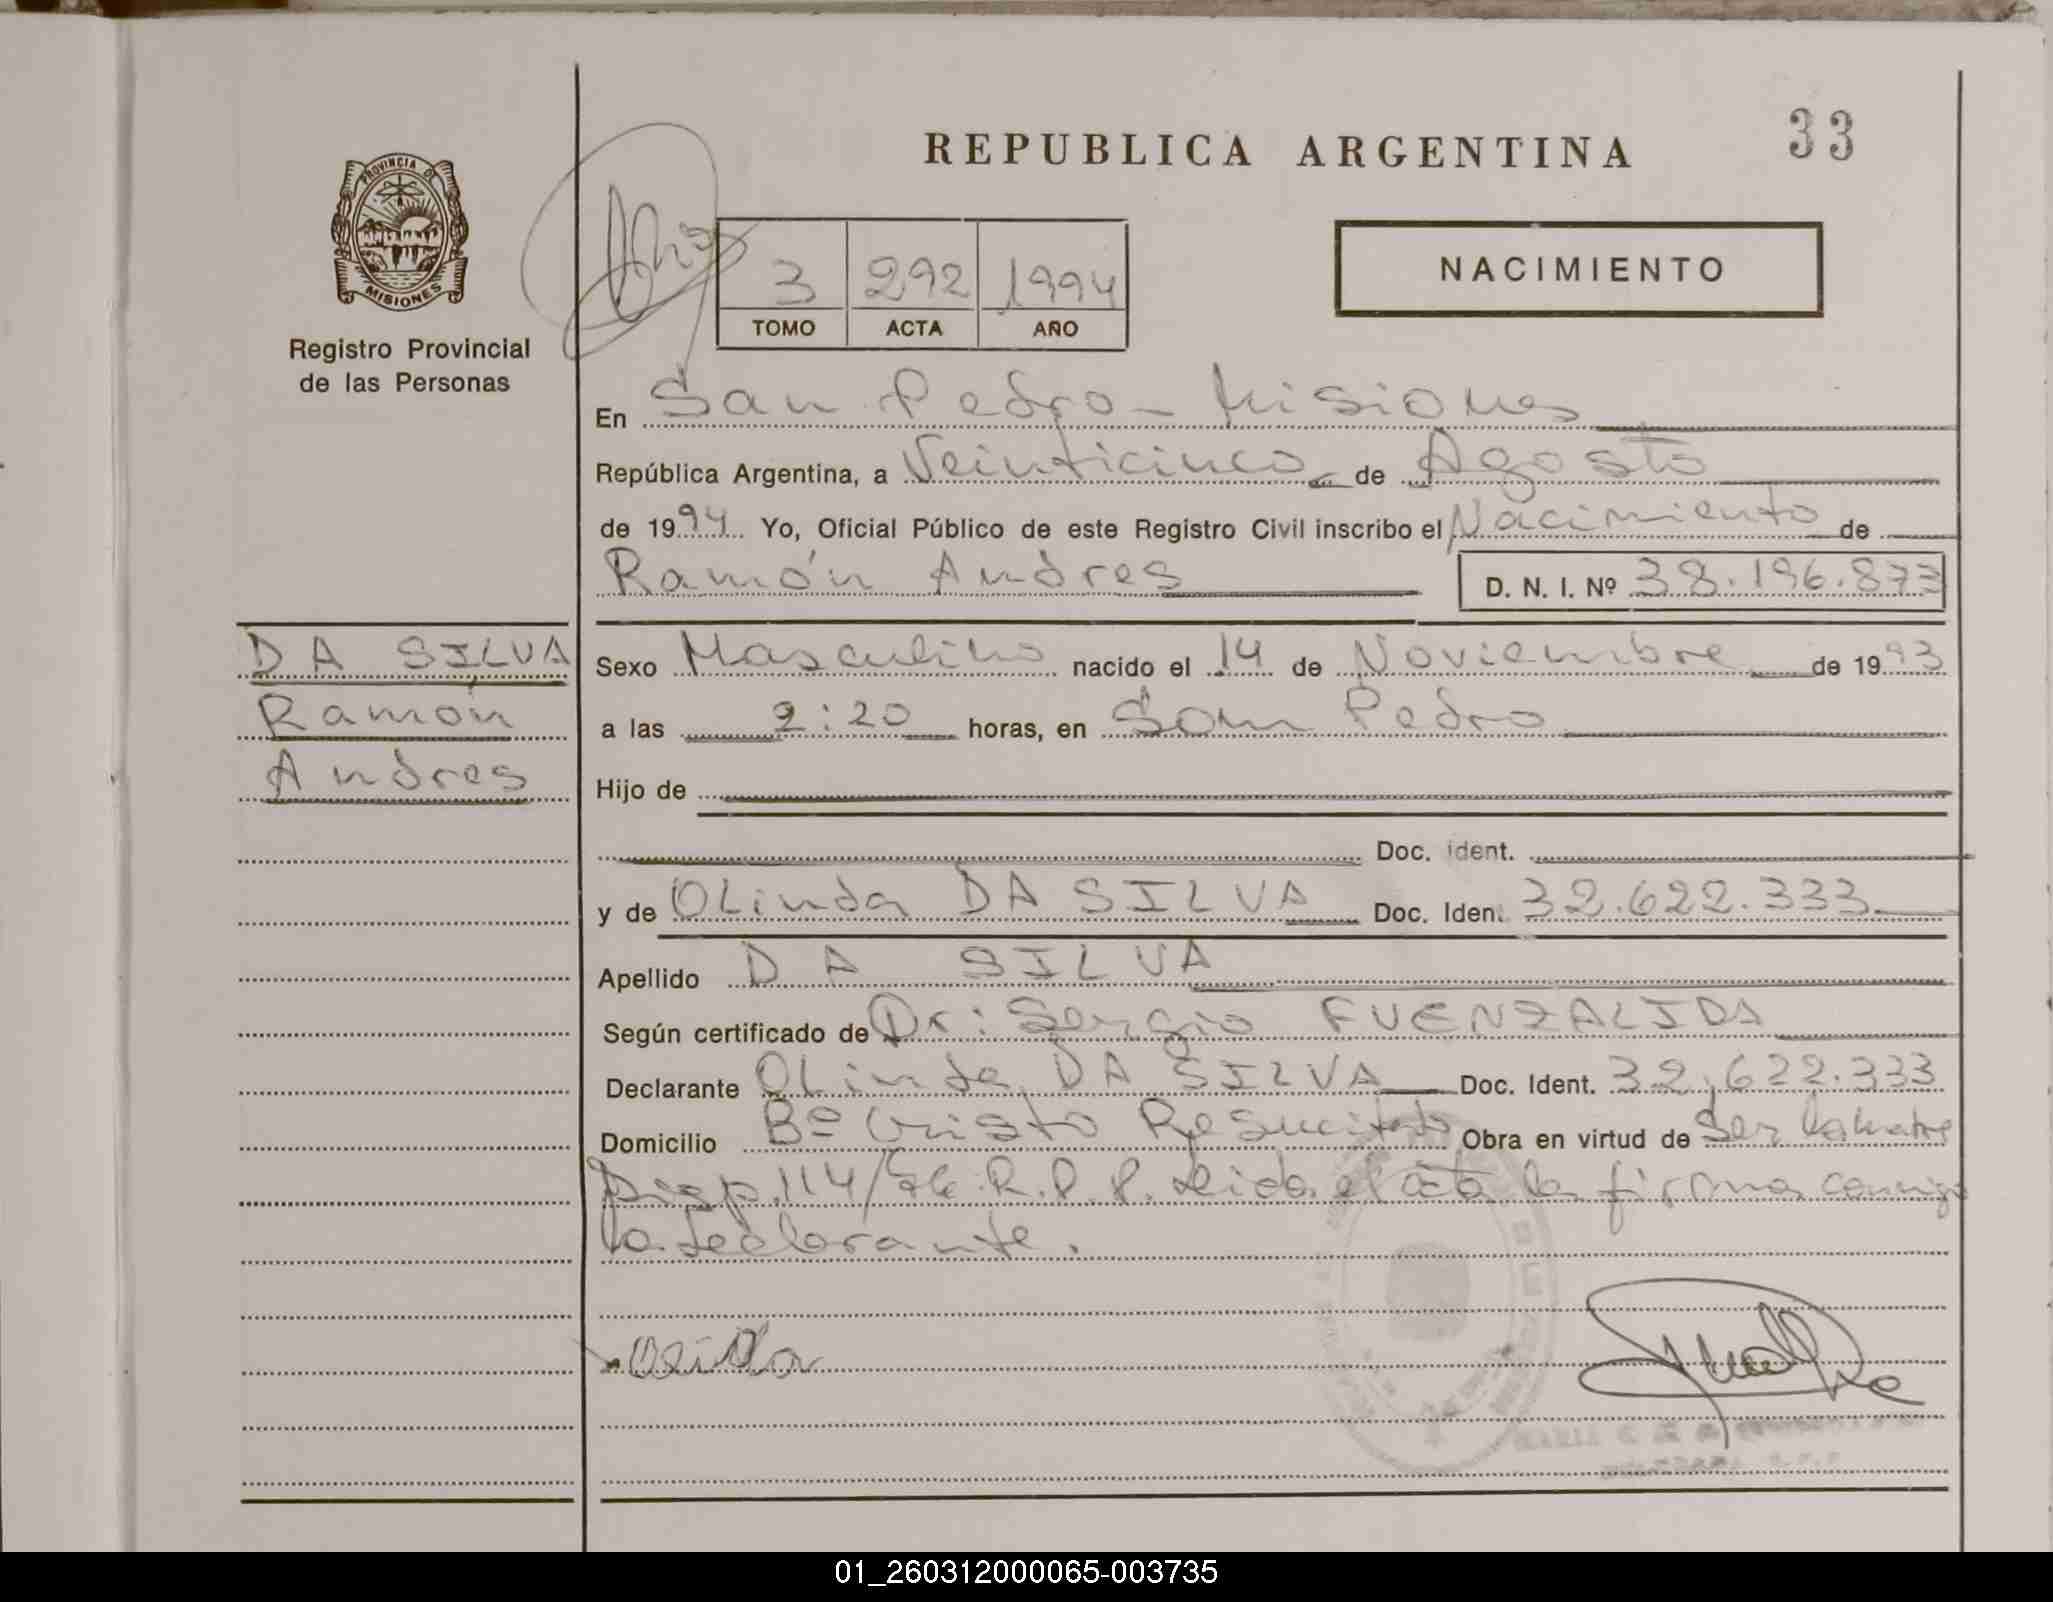 33
REPUBLICA ARGENTINA
PROVINCIA DE
MISIONES
Registro Provincial
de las Personas
3 292 1994
TOMO ACTA AÑO
NACIMIENTO
En San Pedro - Misiones
República Argentina, a Veinticinco de Agosto
de 1994 Yo, Oficial Público de este Registro Civil inscribo el Nacimiento de
Ramón Andres D. N. I. Nº 38.196.873
DA SILVA
Ramón
Andres
Sexo Masculino nacido el 14 de Noviembre de 1993
a las 2:20 horas, en San Pedro
Hijo de
Doc. ident.
y de OLinda DA SILVA Doc. Iden. 32.622.333
Apellido DA SILVA
Según certificado de Dr: Sergio FUENZALIDA
Declarante OLinda DA SILVA Doc. Ident. 32.622.333
Domicilio Bº Cristo Resucitado Obra en virtud de Ser la madre
Disp. 114/ R.P.P. Leida el acta la firma conmigo
la declarante.
01_260312000065-003735